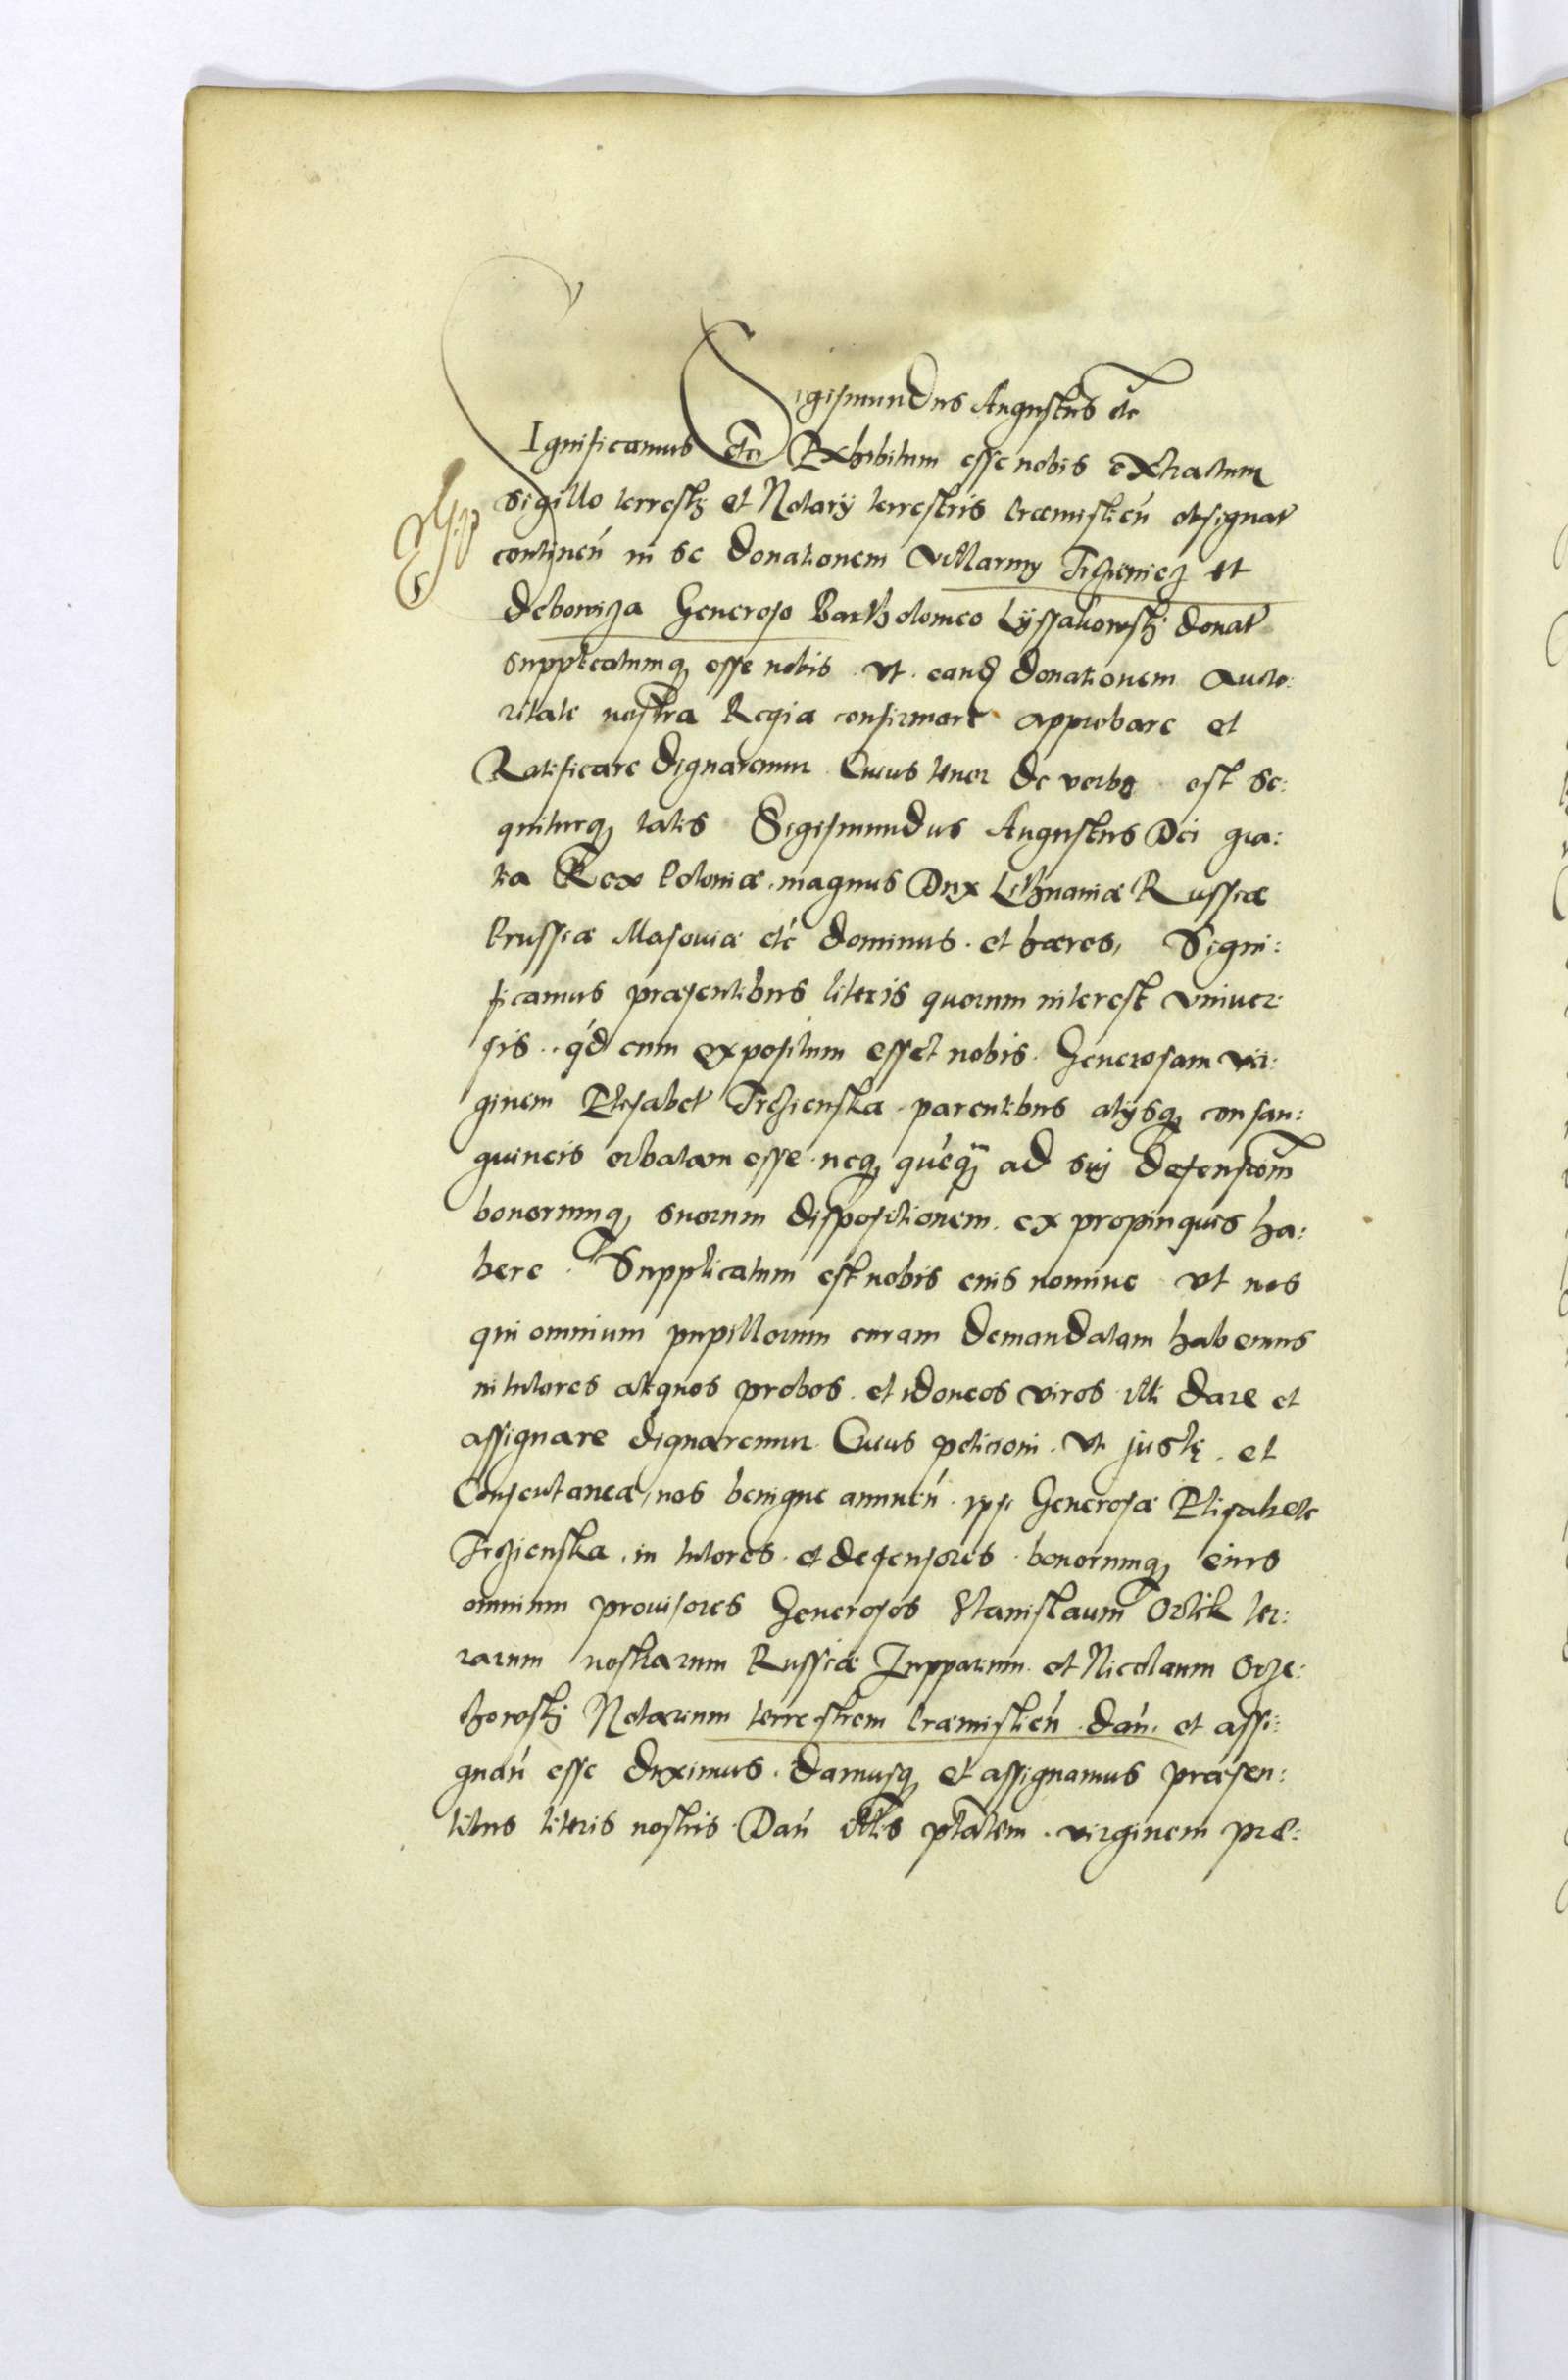 Sigismundus Augustus etc
SIgnificamus etc Exhibitum esse nobis extractum
sigillo terrestrj et Notarij terrestris Præmislien̄ obsignat
continen̄ in se donationem Villarum Trzieniecz et
Debowiza Generoso Bartholomeo Lyssakowskj donat
supplicatumq esse nobis ut eand donationem Aucto:
ritate nostra Regia confirmare approbare et
Ratificare dignaremur Cuius tenor de verbo est se:
quiturq talis Sigismundus Augustus Dei gra:
tia Rex Poloniæ magnus Dux Lithuaniæ Russiæ
Prussiæ Masouiæ etc dominus et hæres, Signi:
ficamus præsentibus literis quorum interest vniuer:
sis q'd cum expositum esset nobis Generosam vir:
ginem Elisabet Trzienska parentibus alijsq consan:
guineis orbatam esse neq quēq ad suj defensiom
bonorumq suorum dispositionem ex propinquis ha:
bere Supplicatum est nobis eius nomine vt nos
qui omnium pupillorum curam demandatam habemus
in tutores aliquos probos et idoneos viros illi dare et
assignare dignaremur Cuius peticioni vt justę et
Consentaneæ, nos benigne annuen̄ ipsi Generosæ Elisabete
Trzienska in tutores et defensores bonorumq eius
omnium prouisores Generosos Stanislaum Orlik ter:
rarum nostrarum Russiæ Zupparium et Nicolaum Orze:
chowskj Notarium terrestrem Præmislien̄ dan̄ et assi:
gnan̄ esse duximus damusq et assignamus præsen:
tibus literis nostris Dan̄ illis ptatem virginem præ: